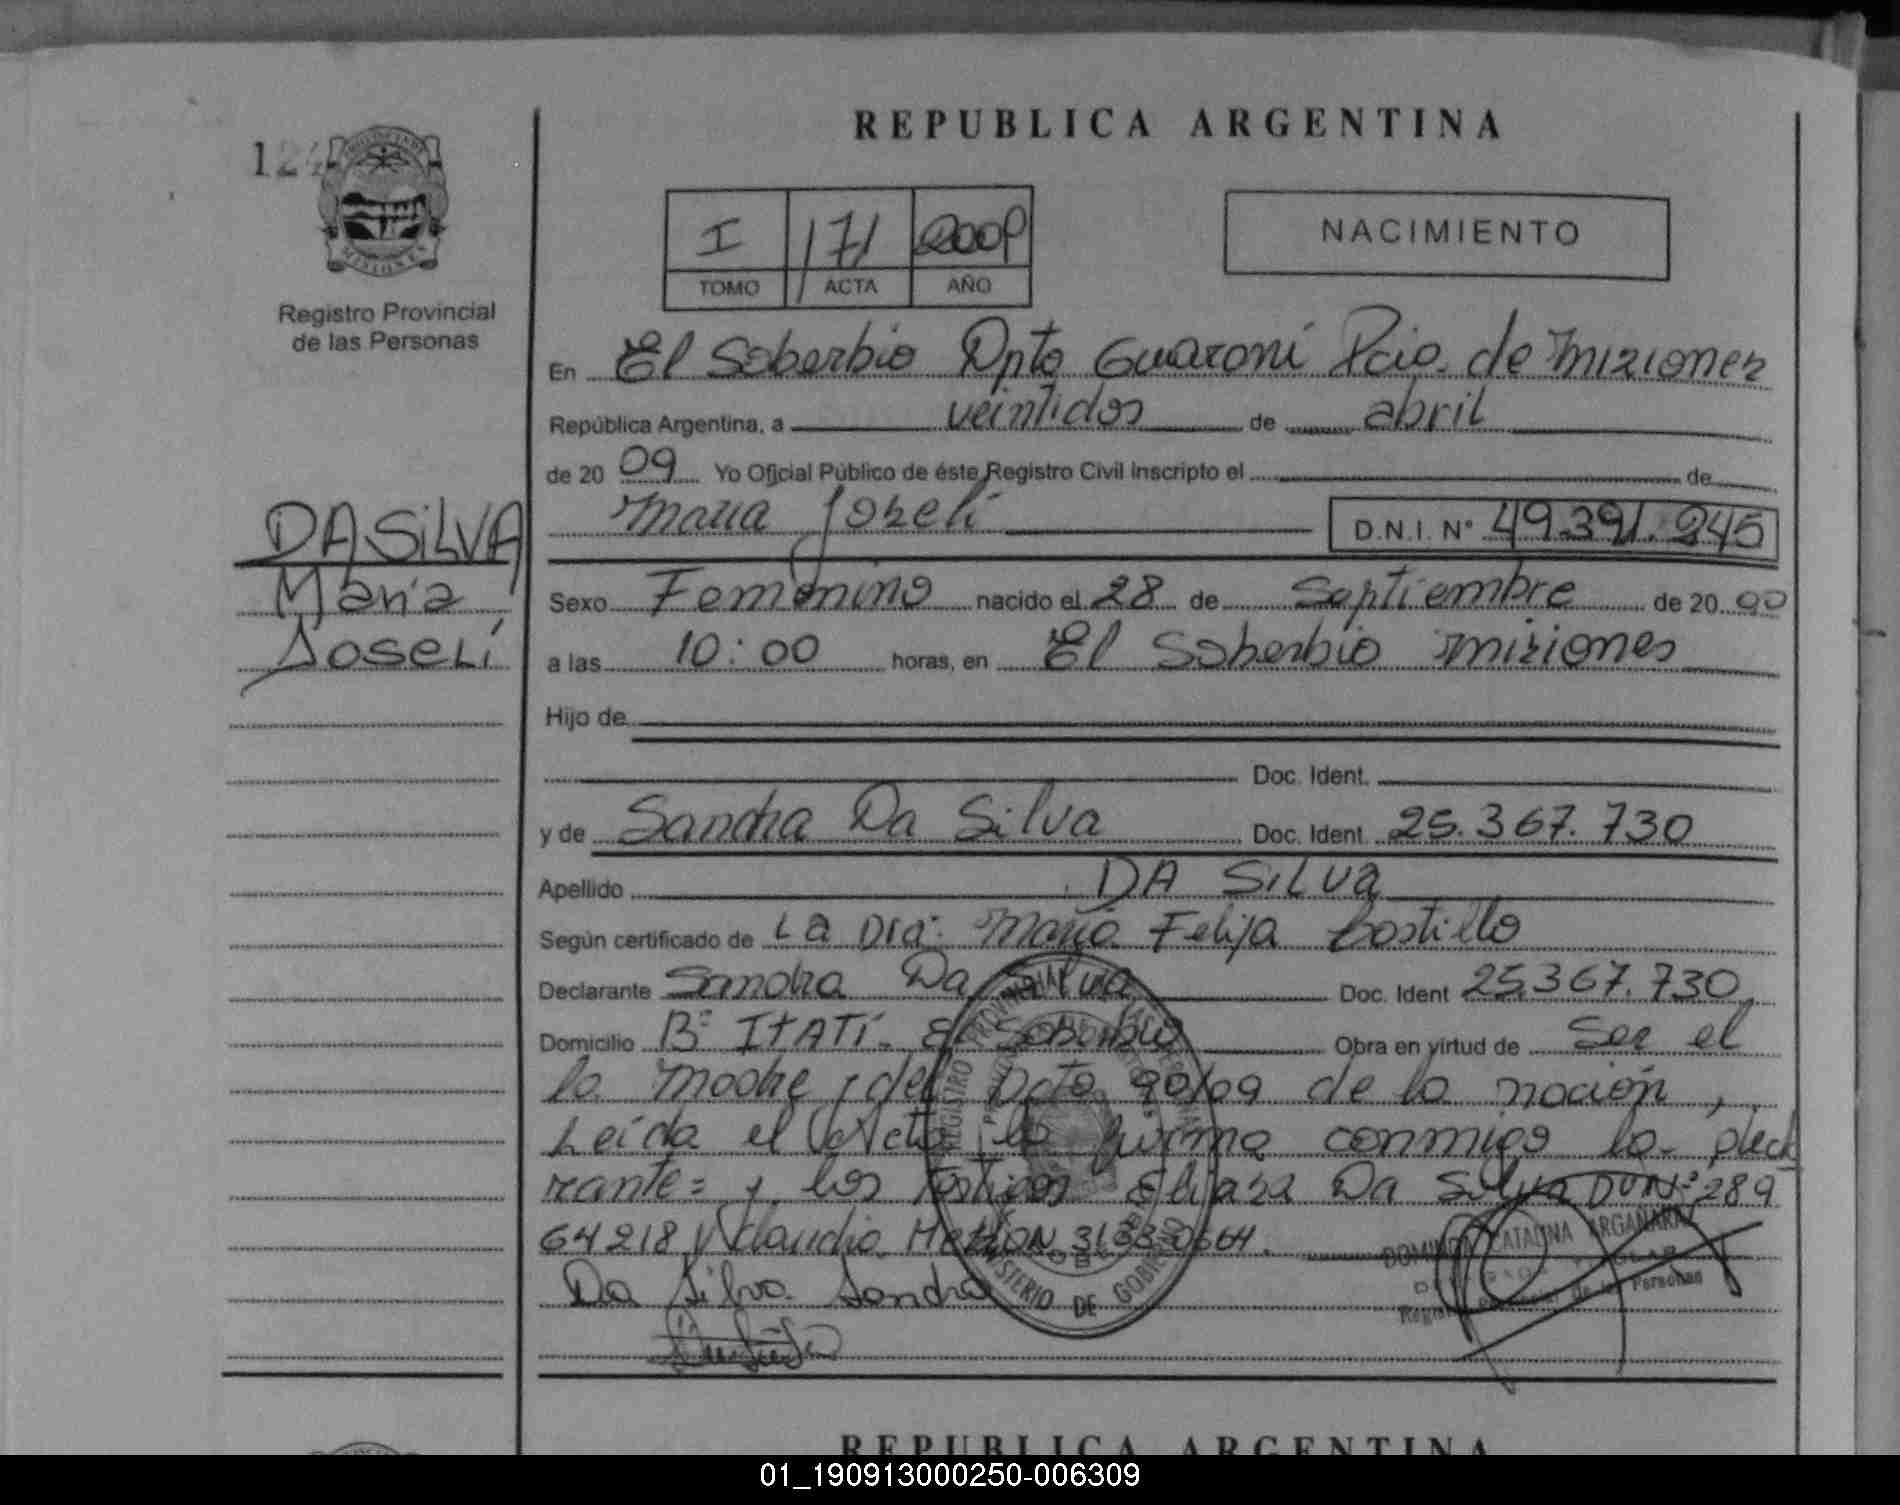 REPUBLICA ARGENTINA
124
PROVINCIA DE
MISIONES
Registro Provincial
de las Personas
I 171 2009
TOMO ACTA AÑO
NACIMIENTO
En El Soberbio Dpto Guaraní Pcia. de Misiones
República Argentina, a veintidos de abril
de 2009 Yo Oficial Público de éste Registro Civil Inscripto el de
Maria Joseli D.N.I. N° 49.391.245
DA SILVA
María
Joselí
Sexo Femenino nacido el 28 de Septiembre de 2000
a las 10:00 horas, en El Soberbio Misiones
Hijo de
Doc. Ident.
y de Sandra Da Silva Doc. Ident. 25.367.730
Apellido DA SILVA
Según certificado de La Dra. Maria Felija Bostillo
Declarante Sandra Da Silva Doc. Ident 25.367.730
Domicilio B° ITATÍ. El Soberbio Obra en virtud de Ser el
la madre, del Dcto 90/09 de la nación,
Leída el Acta la firma conmigo la decla
rante= y los testigos Eliaza Da Silva DUN° 289
64218 y Claudia 31330564.
Da Silva Sandra
REGISTRO PROVINCIAL DE LAS PERSONAS
MINISTERIO DE GOBIERNO
CATALINA ARGAÑARAZ
Registro Provincial de las Personas
REPUBLICA ARGENTINA
01_190913000250-006309